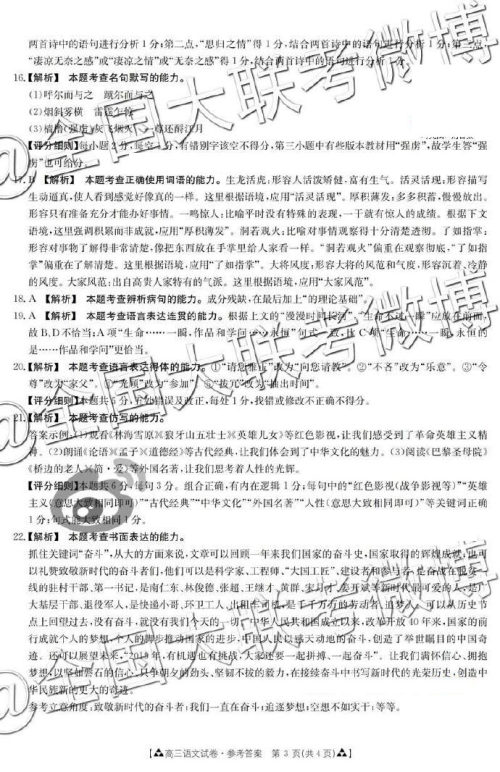 两首诗中的语句进行分析1分;第二点,“思归之情”得1分,结合两首诗中的语句进行分析1分;第三点,
“凄凉无奈之感”或“凄凉之情”或“无奈之感”得1分,结合两首诗中的语句进行分析1分。
16.【解析】 本题考查名句默写的能力。
(1)呼尔而与之 蹴尔而与之
(2)烟斜雾横 雷霆乍惊
(3)樯橹(强虏)灰飞烟灭 一尊还酹江月
【评分细则】每小题2分,每空1分,有错别字该空不得分,第三小题中有些版本教材用“强虏”,故学生答“强
虏”也可给分。
17.B 【解析】 本题考查正确使用词语的能力。生龙活虎:形容人活泼矫健,富有生气。活灵活现:形容描写
生动逼真,使人看到感觉好像真的一样。这里根据语境,应用“活灵活现”。厚积薄发:多多积蓄,慢慢放出。
形容只有准备充分才能办好事情。一鸣惊人:比喻平时没有特殊的表现,一干就有惊人的成绩。根据下文
语境,这里强调积累而非成就,应用“厚积薄发”。洞若观火:比喻对事情观察得十分清楚透彻。了如指掌:
形容对事物了解得非常清楚,像把东西放在手掌里给人家看一样。“洞若观火”偏重在观察彻底,“了如指
掌”偏重在了解清楚。这里根据语境,应用“了如指掌”。大将风度:形容大将的风范和气度,形容沉着、冷静
的风度。大家风范:出自高贵人家特有的气派。这里根据语境,应用“大家风范”。
18.A 【解析】 本题考查辨析病句的能力。成分残缺,在最后加上“的理论基础”。
19.A 【解析】 本题考查语言表达连贯的能力。根据上文的“漫漫时间长河”,“生命不过一瞬”应放在前面,
故B、D不恰当;A项“生命……一瞬,作品和学问……永恒”句式一致,比C项“生命……一瞬,永恒的
是……作品和学问”更恰当。
20.【解析】 本题考查语言表达得体的能力。①“请您雅正”改为“向您请教”。②“不吝”改为“乐意”。③“令
尊”改为“家父”。④“光顾”改为“参加”。⑤“拨冗”改为“抽出时间”。
【评分细则】本题共5分,五处错误及改正,每处1分,找错或修改不正确不得分。
21.【解析】 本题考查仿写的能力。
答案示例:(1)观看《林海雪原》《狼牙山五壮士》《英雄儿女》等红色影视,让我们感受到了革命英雄主义精
神。(2)朗诵《论语》《孟子》《道德经》等古代经典,让我们体会到了中华文化的魅力。(3)阅读《巴黎圣母院》
《桥边的老人》《简·爱》等外国名著,让我们思考着人性的光辉。
【评分细则】本题共6分,每句3分。组合正确,有内在逻辑1分,每句中的“红色影视(战争影视等)”“英雄
主义(意思大致相同即可)”“古代经典”“中华文化”“外国名著”“人性(意思大致相同即可)”等关键词正确
1分;句式能大致相同1分。
22.【解析】 本题考查书面表达的能力。
抓住关键词“奋斗”,从大的方面来说,文章可以回顾一年来我们国家的奋斗史,国家取得的辉煌成就;也可
以礼赞致敬新时代的奋斗者们,他们可以是科学家、工程师、“大国工匠”、建设者和参与者,是奋战在脱贫一
线的驻村干部、第一书记,是南仁东、林俊德、张超、王继才、黄群、宋月才、姜开斌等新时代最可爱的人,是广
大基层干部、退役军人,是快递小哥、环卫工人、出租车司机,是千千万万的劳动者、追梦人。可以从历史节
点上回望过去,没有奋斗,就没有我们今天的一切。中华人民共和国成立以来,改革开放40年来,国家的前
行成就个人的梦想,个人的脚步推动国家的进步,中国人民以感天动地的奋斗,创造了举世瞩目的中国奇
迹。还可以展望未来,“2019年,有机遇也有挑战,大家还要一起拼搏、一起奋斗”。让我们满怀信心、拥抱
梦想,以坚如磐石的信心、只争朝夕的劲头、坚韧不拔的毅力,在接续奋斗中书写新时代的光荣历史,创造中
华民族新的更大的奇迹。
参考立意角度:致敬新时代的奋斗者;我们一直在奋斗;追逐梦想;空想不如实干;等等。
【高三语文试卷·参考答案 第3页(共4页)】
@全国大联考微博
@全国大联考微博
@全国大联考微博